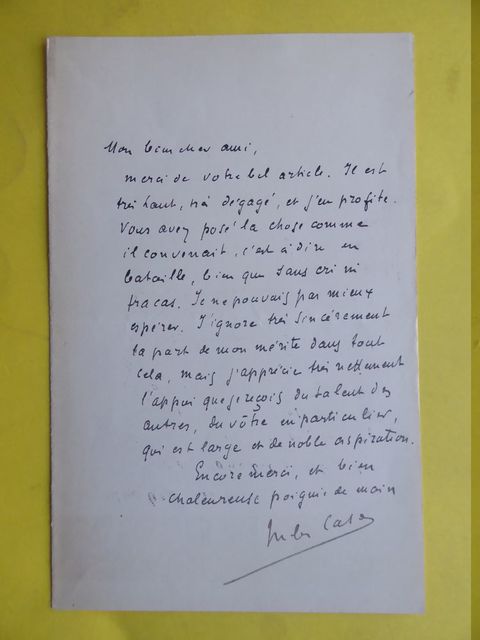 Mon bien cher ami,
merci de votre bel article. Il est
très haut, très dégagé, et j'en profite.
Vous avez posé la chose comme
il convenait, c'est à dire en
bataille, bien que sans cri ni
fracas. Je ne pouvais pas mieux
espérer. J'ignore très sincèrement
la part de mon mérite dans tout
cela, mais j'apprécie très nettement
l'appui que je reçois du talent des
autres, du vôtre en particulier,
qui est large et de noble aspiration.
Encore merci, et bien
chaleureuse poignée de main
Jules